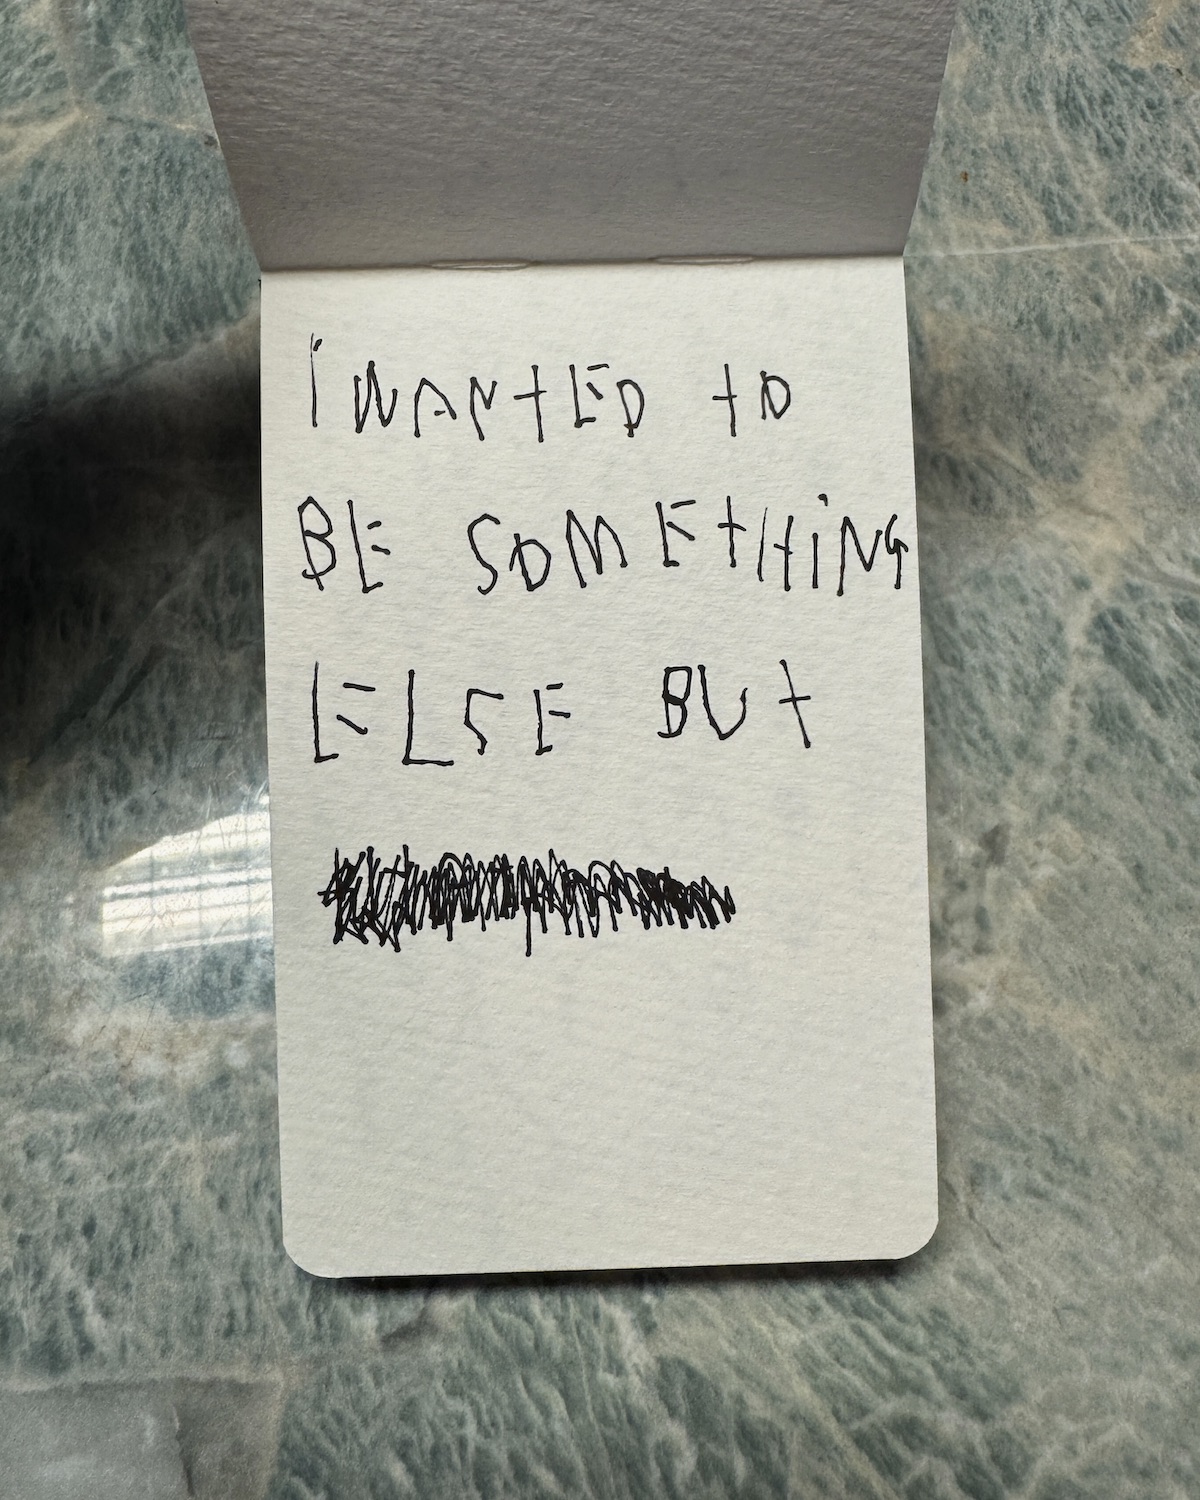 i WANTED TO
BE SOMETHiNG
ELSE BUT